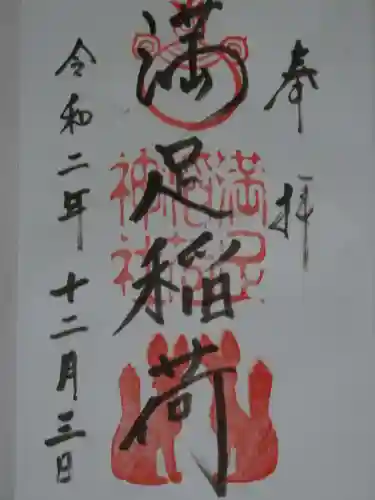 奉拝
満足稲荷
満足稲荷神社
令和二年十二月三日